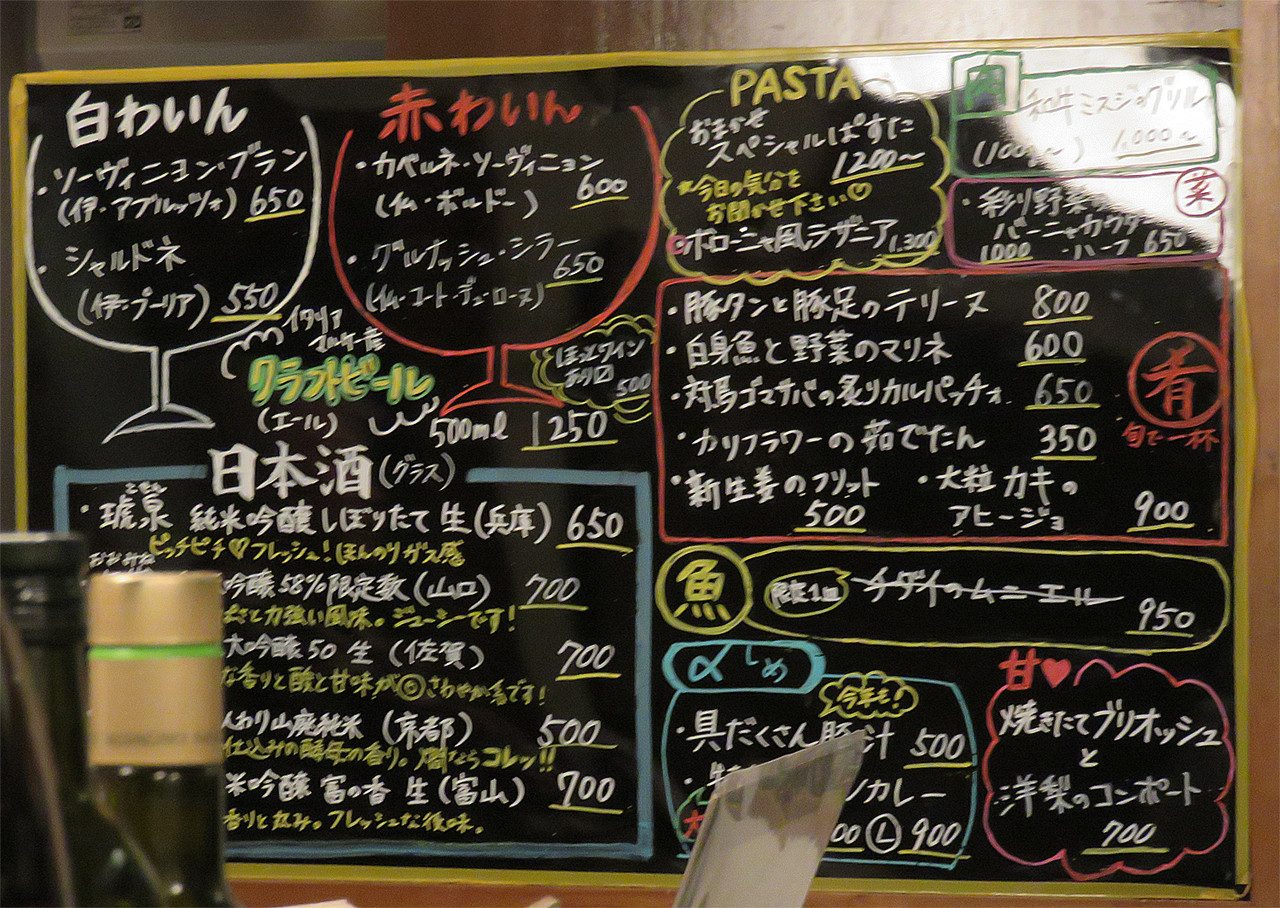 白わいん
・ソーヴィニヨン・ブラン
(伊・アブルッツォ) 650
・シャルドネ
(伊・プーリア) 550
赤わいん
・カベルネ・ソーヴィニョン
(仏・ボルドー) 600
・グルナッシュ・シラー
650
(仏・コート・デュ・ローヌ)
ほっとワイン
あり〼
500
イタリア
マルケ産
クラフトビール
(エール)
500ml 1250
日本酒(グラス)
・琥泉 純米吟醸しぼりたて 生(兵庫) 650
ピッチピチ♡フレッシュ!ほんのりガス感
おおみね
吟醸58%限定数(山口) 700
力強い風味。ジューシーです!
大吟醸50 生 (佐賀) 700
な香りと酸と甘味が
さわやか
です!
山廃純米 (京都) 500
仕込みの酵母の香り。燗ならコレッ!!
米吟醸 富の香 生(富山) 700
香りと
フレッシュな後味。
PASTA
おまかせ
スペシャルぱすた
1200〜
※今日の気分を
お聞かせ下さい♡
ボローニャ風ラザニア 1,300
肉
和牛ミスジのグリル
(100g〜) 1,000〜
菜
・彩り野菜
バーニャカウダ
1000 ・ハーフ 650
肴
旬で一杯
・豚タンと豚足のテリーヌ 800
・白身魚と野菜のマリネ 600
・対馬ゴマサバの炙りカルパッチョ 650
・カリフラワーの茹でたん 350
・新生姜のフリット
500
・大粒カキの
アヒージョ 900
魚
チダイのムニエル
950
〆しめ
今年も!
・具だくさん豚汁 500
カレー
Ⓛ 900
甘♥
焼きたてブリオッシュ
と
洋梨のコンポート
700